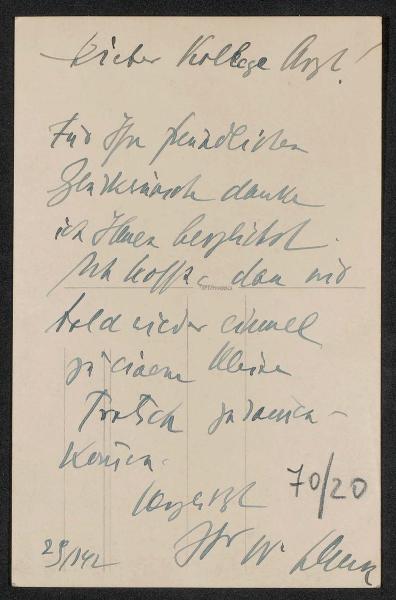 Lieber Kollege Arzt!
Für Ihre freundlichen
Glückwünsche danke
ich Ihnen herzlichst.
Ich hoffe, dass wir
bald wieder einmal
zu einem kleinen
Tratsch zusammen-
kommen.
Herzlichst
Ihr W.
70/20